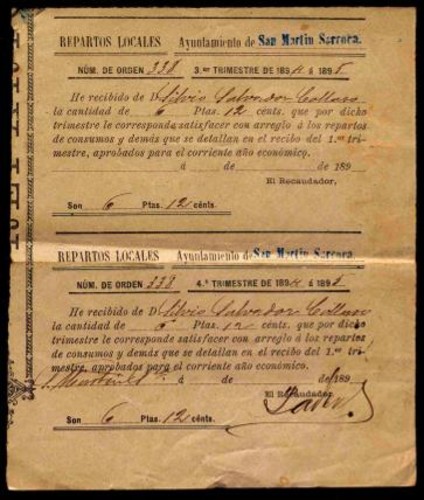 REPARTOS LOCALES Ayuntamiento de San Martin Sarroca.
NÚM. DE ORDEN 338 3.er TRIMESTRE DE 1894 á 1895.
He recibido de D. Silvio Salvador Collaso
la cantidad de 6 Ptas. 12 cénts. que por dicho
trimestre le corresponde satisfacer con arreglo á los repartos
de consumos y demás que se detallan en el recibo del 1.er tri-
mestre, aprobados para el corriente año económico.
á de de 189
El Recaudador,
Son 6 Ptas. 12 cénts.
REPARTOS LOCALES Ayuntamiento de San Martin Sarroca.
NÚM. DE ORDEN 338 4.º TRIMESTRE DE 1894 á 1895
He recibido de D. Silvio Salvador Collaso
la cantidad de 6 Ptas. 12 cénts. que por dicho
trimestre le corresponde satisfacer con arreglo á los repartos
de consumos y demás que se detallan en el recibo del 1.er tri-
mestre, aprobados para el corriente año económico.
á de de 189
El Recaudador,
Son 6 Ptas. 12 cénts.